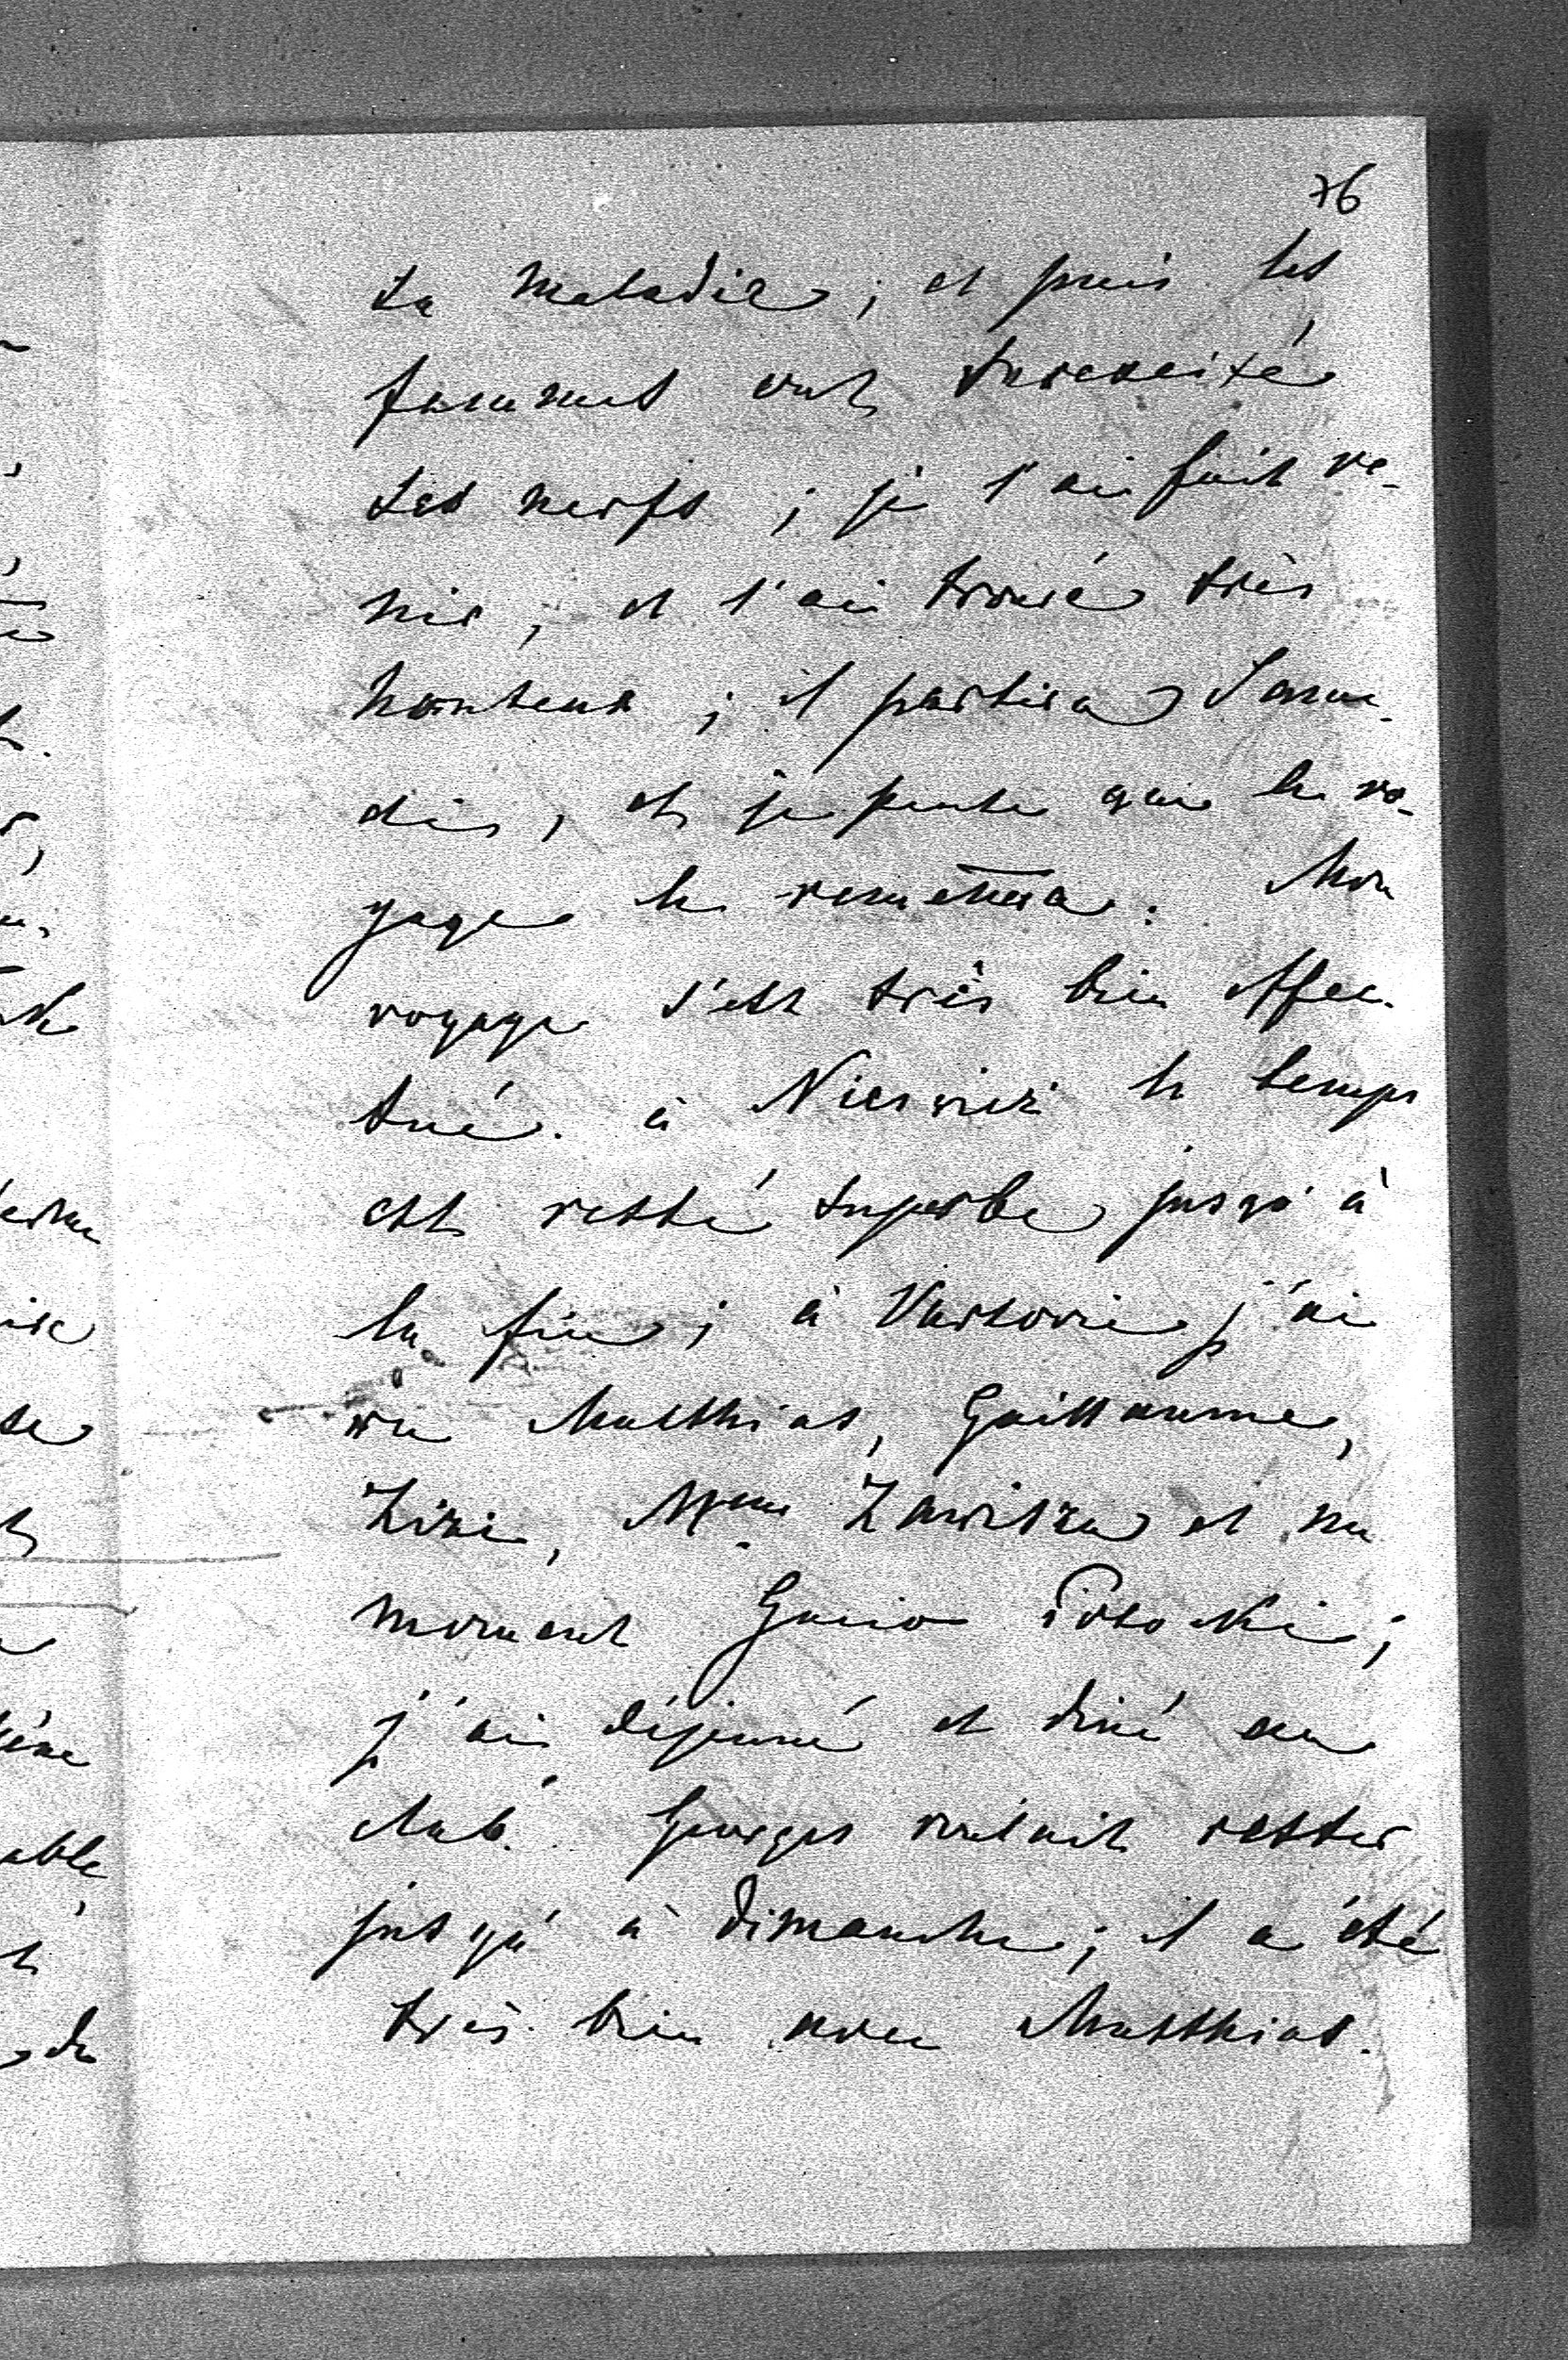 76
sa maladie ; et puis les
femmes ont surexcité
ses nerfs ; je l'ai fait ve-
nir, et l'ai trouvé très
honteux ; il partira Same-
di, et je pense que le vo-
yage le remettra. Mon
voyage s'est très bien effec-
tué. à Nieswiez le temps
est resté superbe jusqu'à
la fin ; à Varsovie j'ai
vu Matthias, Guillaume,
Zizi, Mme Zawisza et un
moment Gucio Potocki ;
j'ai déjeuné et diné au
club. Georges voulait rester
jusqu'à dimanche ; il a été
très bien avec Matthias.